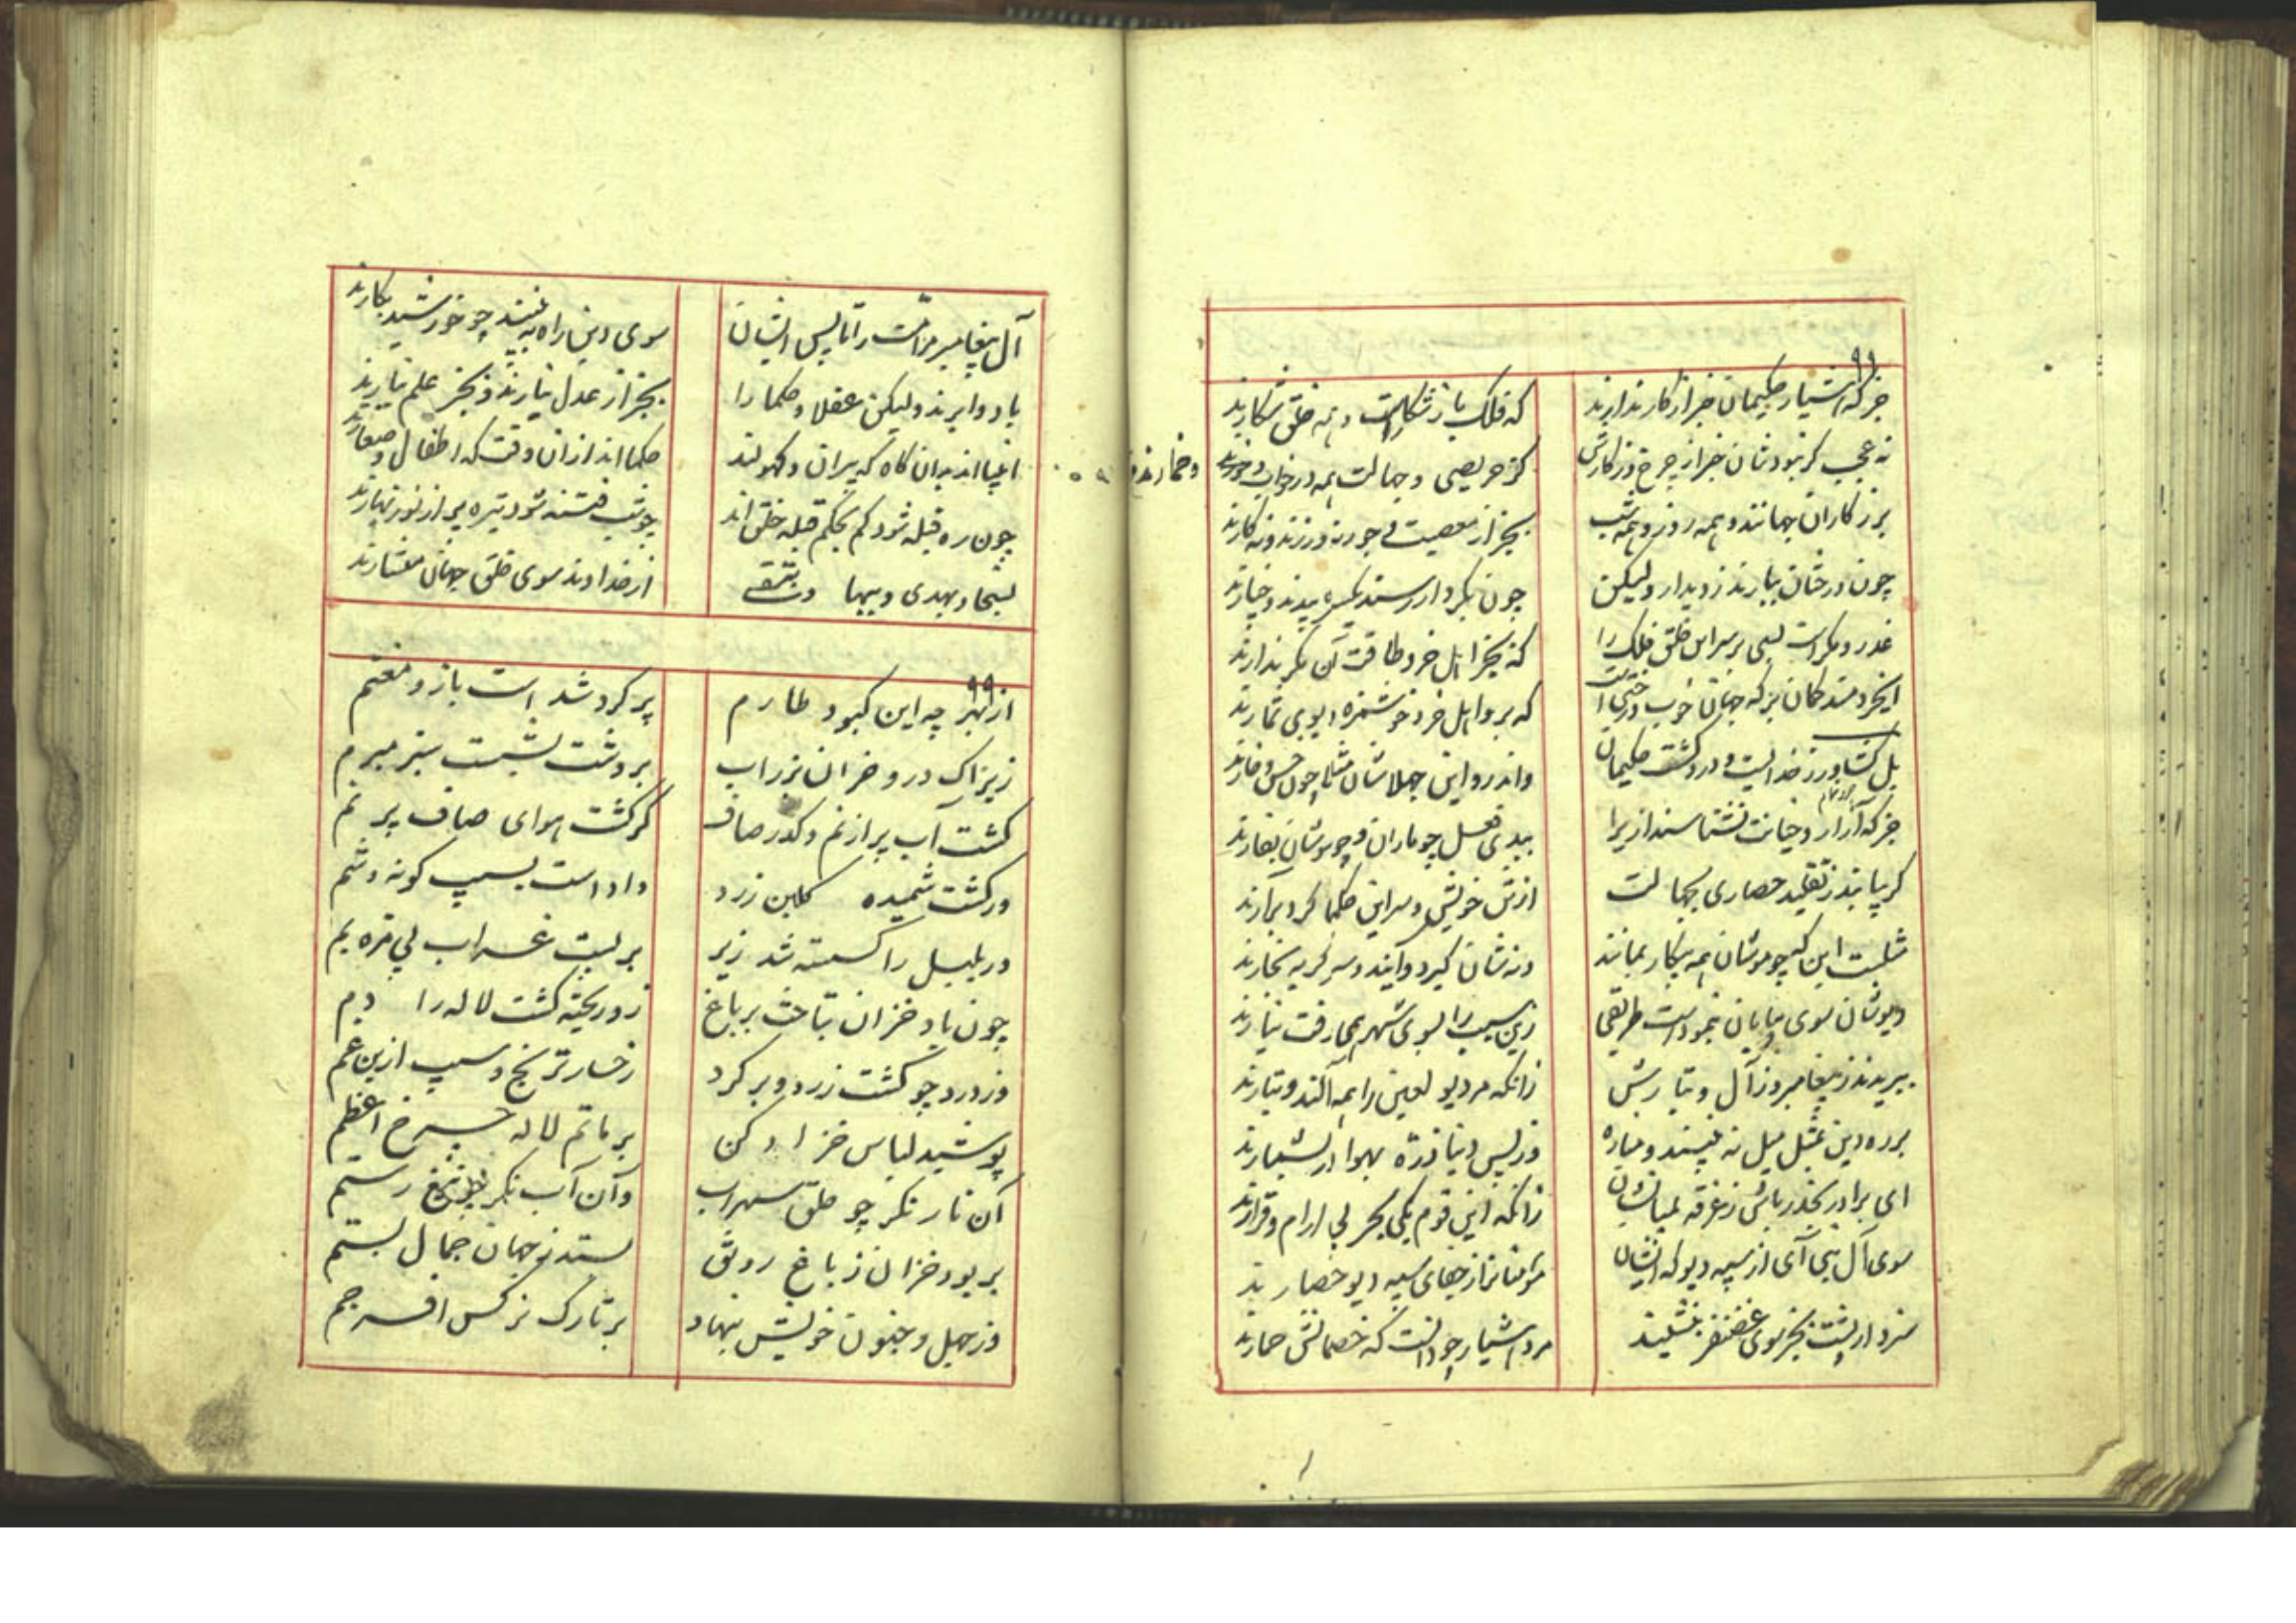 ۹۸
جز که هشیار حکیمان خبر از کار ندارند
که فلک باز شکار است و همه خلق شکارند
نه عجب گر نبودشان خبر از چرخ و ز کارش
کز حریصی و جهالت همه در خواب و
و خمارند
برزکاران جهانند و همه روز و همه شب
بجز از معصیت و جور نه ورزند و نه کارند
چون درختان ببارند ز دیدار ولیکن
چون بکردار رسد یکسره بیدند و خیارند
غدر و مکر است بسی بر سر این خلق فلک را
که بجز اهل خرد طاقت آن مکر ندارند
ای خردمند گمان بر که جهان خوب درختی است
که برو اهل خرد خوشمزه و بویی ثمارند
بل کشاورز خدایست و درو کشت حکیمان
واندرو این جهلاشان مثلا چون خس و خارند
جز که آزار و خیانت نشناسند ازیرا
ببدی فعل چو ماران و چو موشان بغارند
گر بیابند ز تقلید حصاری بجهالت
از تن خویش و سر این حکما گرد برآرند
مثلست این که چو موشان همه بیکار بمانند
دنه شان گیرد و آیند و سر گربه بخارند
دیوشان سوی بیابان بنمودست طریقی
زین سبب را بسوی شهر همی رفت نیارند
ببریدند ز پیغامبر و ز آل و تبارش
زانکه مر دیو لعین را همه آلند و تبارند
بر ره دین بمثل میل نه بینند و مناره
وز پس دنیا ذره بهوا در بشمارند
ای برادر بحذر باش ز غرقه بمیانشان
زانکه این قوم یکی بحر بی آرام و قرارند
سوی آل نبی آی از سپه دیو که ایشان
مؤمنان را ز جفای سپه دیو حصارند
سزد ار پشت بجز سوی غضنفر ننشیند
مرد هشیار چو دانست که خصمانش حمارند
آل پیغامبر مر امت را تا پس ایشان
سوی دین راه به بینند چو خورشید بکارند
باد و ابرند ولیکن عقلا و حکما را
بجز از عدل نبارند و بجز علم نیارند
انبیا اند بدان گاه که پیران و کهولند
حکما اند از ان وقت که اطفال و صغارند
چون ره قبله شود گم بحکم قبله خلق اند
چو شب فتنه شود تیره پر از نور نهارند
بسخا و بهدی و ببها و بتقی
از خداوند سوی خلق جهان مستشارند
۹۹
از بهر چه این کبود طارم
پر گرد شد است باز و مغتم
زیراک درو خزان بزر آب
بر دشت نبشت سبز مبرم
گشت آب پر از نم و کدر صاف
گر گشت هوای صاف پر نم
ور گشت شمیده گلبن زرد
داد است بسیب گونه و شم
ور بلبل را گسسته شد زیر
بر بست غراب بی مزه بم
چون باد خزان بتاخت بر باغ
زو ریخته گشت لاله را دم
وز درد چو گشت زرد و پر گرد
رخسار ترنج و سیب ازین غم
پوشید لباس خز ادکن
بر ماتم لاله چرخ اعظم
آن نار نگر چو حلق سهراب
وآن آب نگر چو تیغ رستم
بربود خزان ز باغ رونق
بستد ز جهان جمال بستم
وز جهل و جنون خویش بنهاد
بر تارک نرگس افسر جم